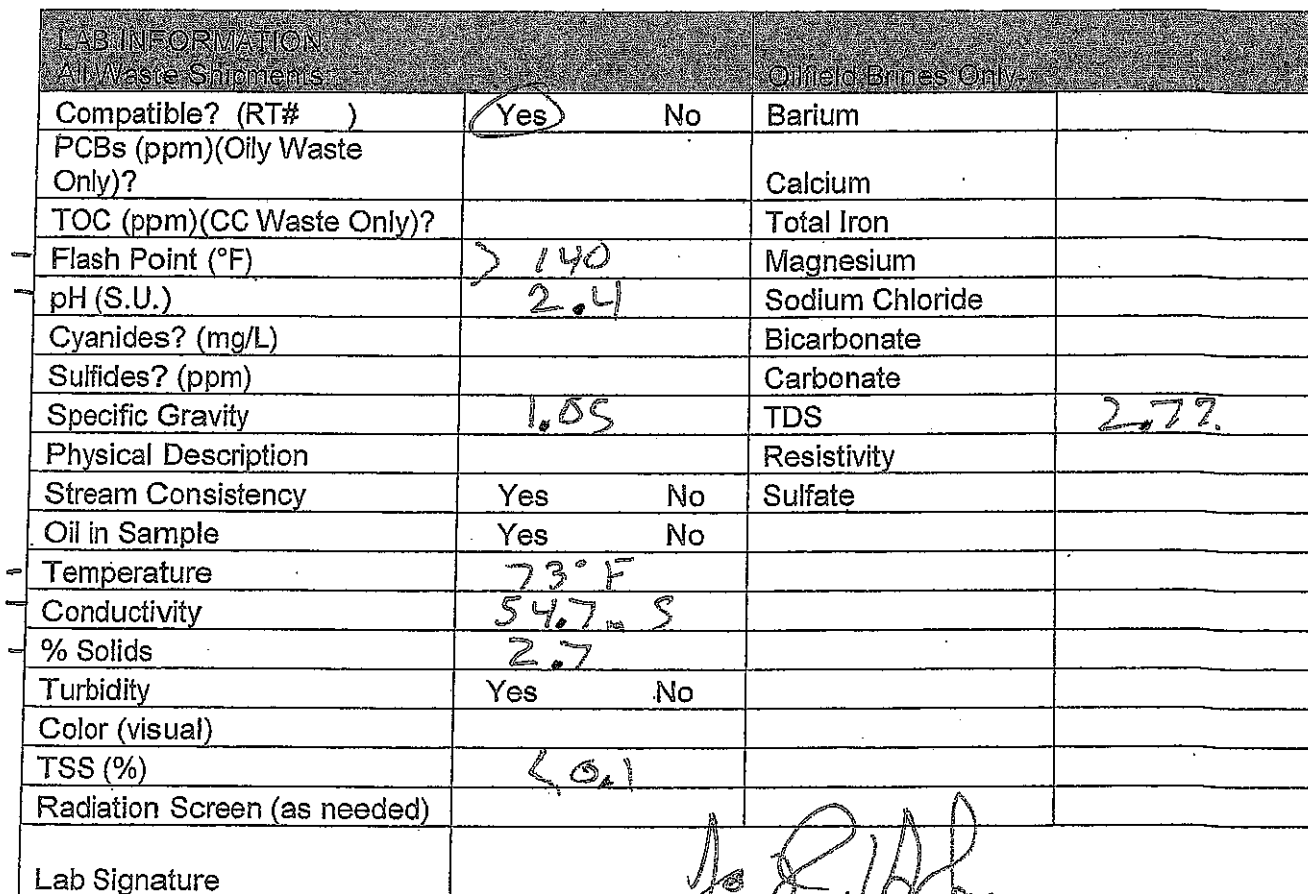 LAB INFORMATION
All Waste Shipments Oilfield Brines Only
Compatible? (RT# ) Yes No Barium
PCBs (ppm)(Oily Waste
Only)? Calcium
TOC (ppm)(CC Waste Only)? Total Iron
Flash Point (°F) > 140 Magnesium
pH (S.U.) 2.4 Sodium Chloride
Cyanides? (mg/L) Bicarbonate
Sulfides? (ppm) Carbonate
Specific Gravity 1.05 TDS
Physical Description Resistivity
Stream Consistency Yes No Sulfate
Oil in Sample Yes No
Temperature 73° F
Conductivity 54.7 S
% Solids 2.7
Turbidity Yes No
Color (visual)
TSS (%) < 0.1
Radiation Screen (as needed)
Lab Signature